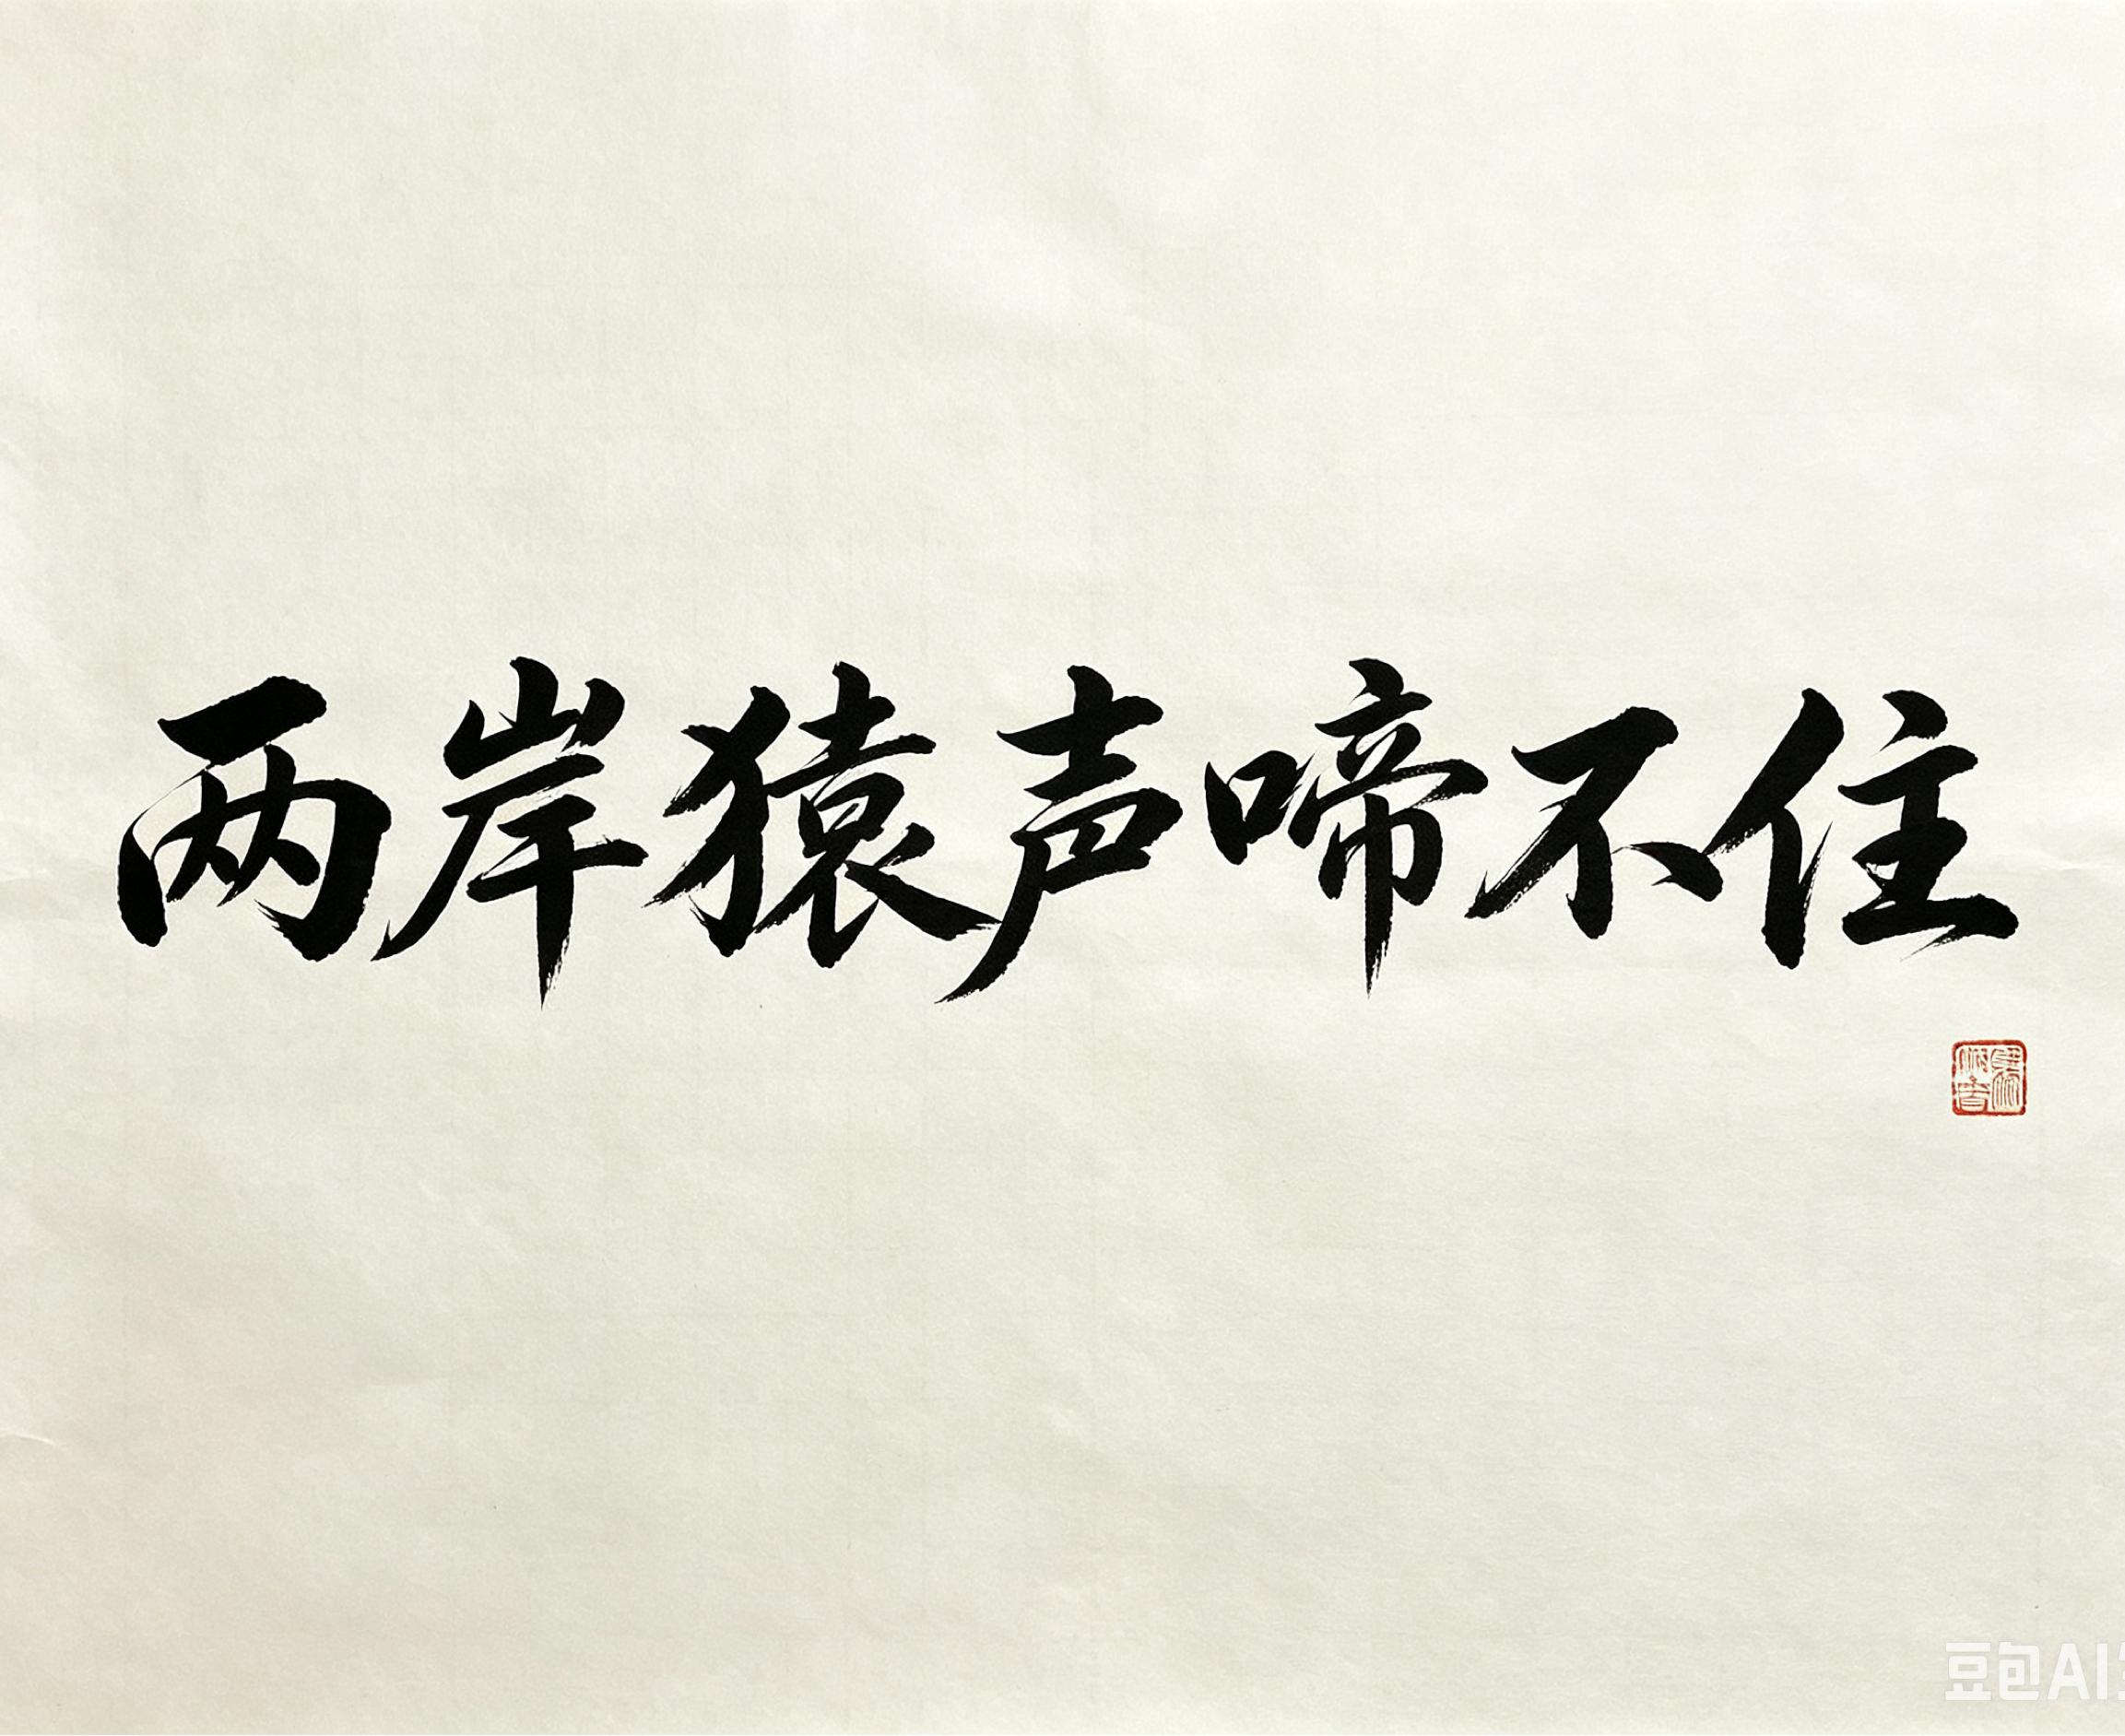 两岸猿声啼不住
豆包AI